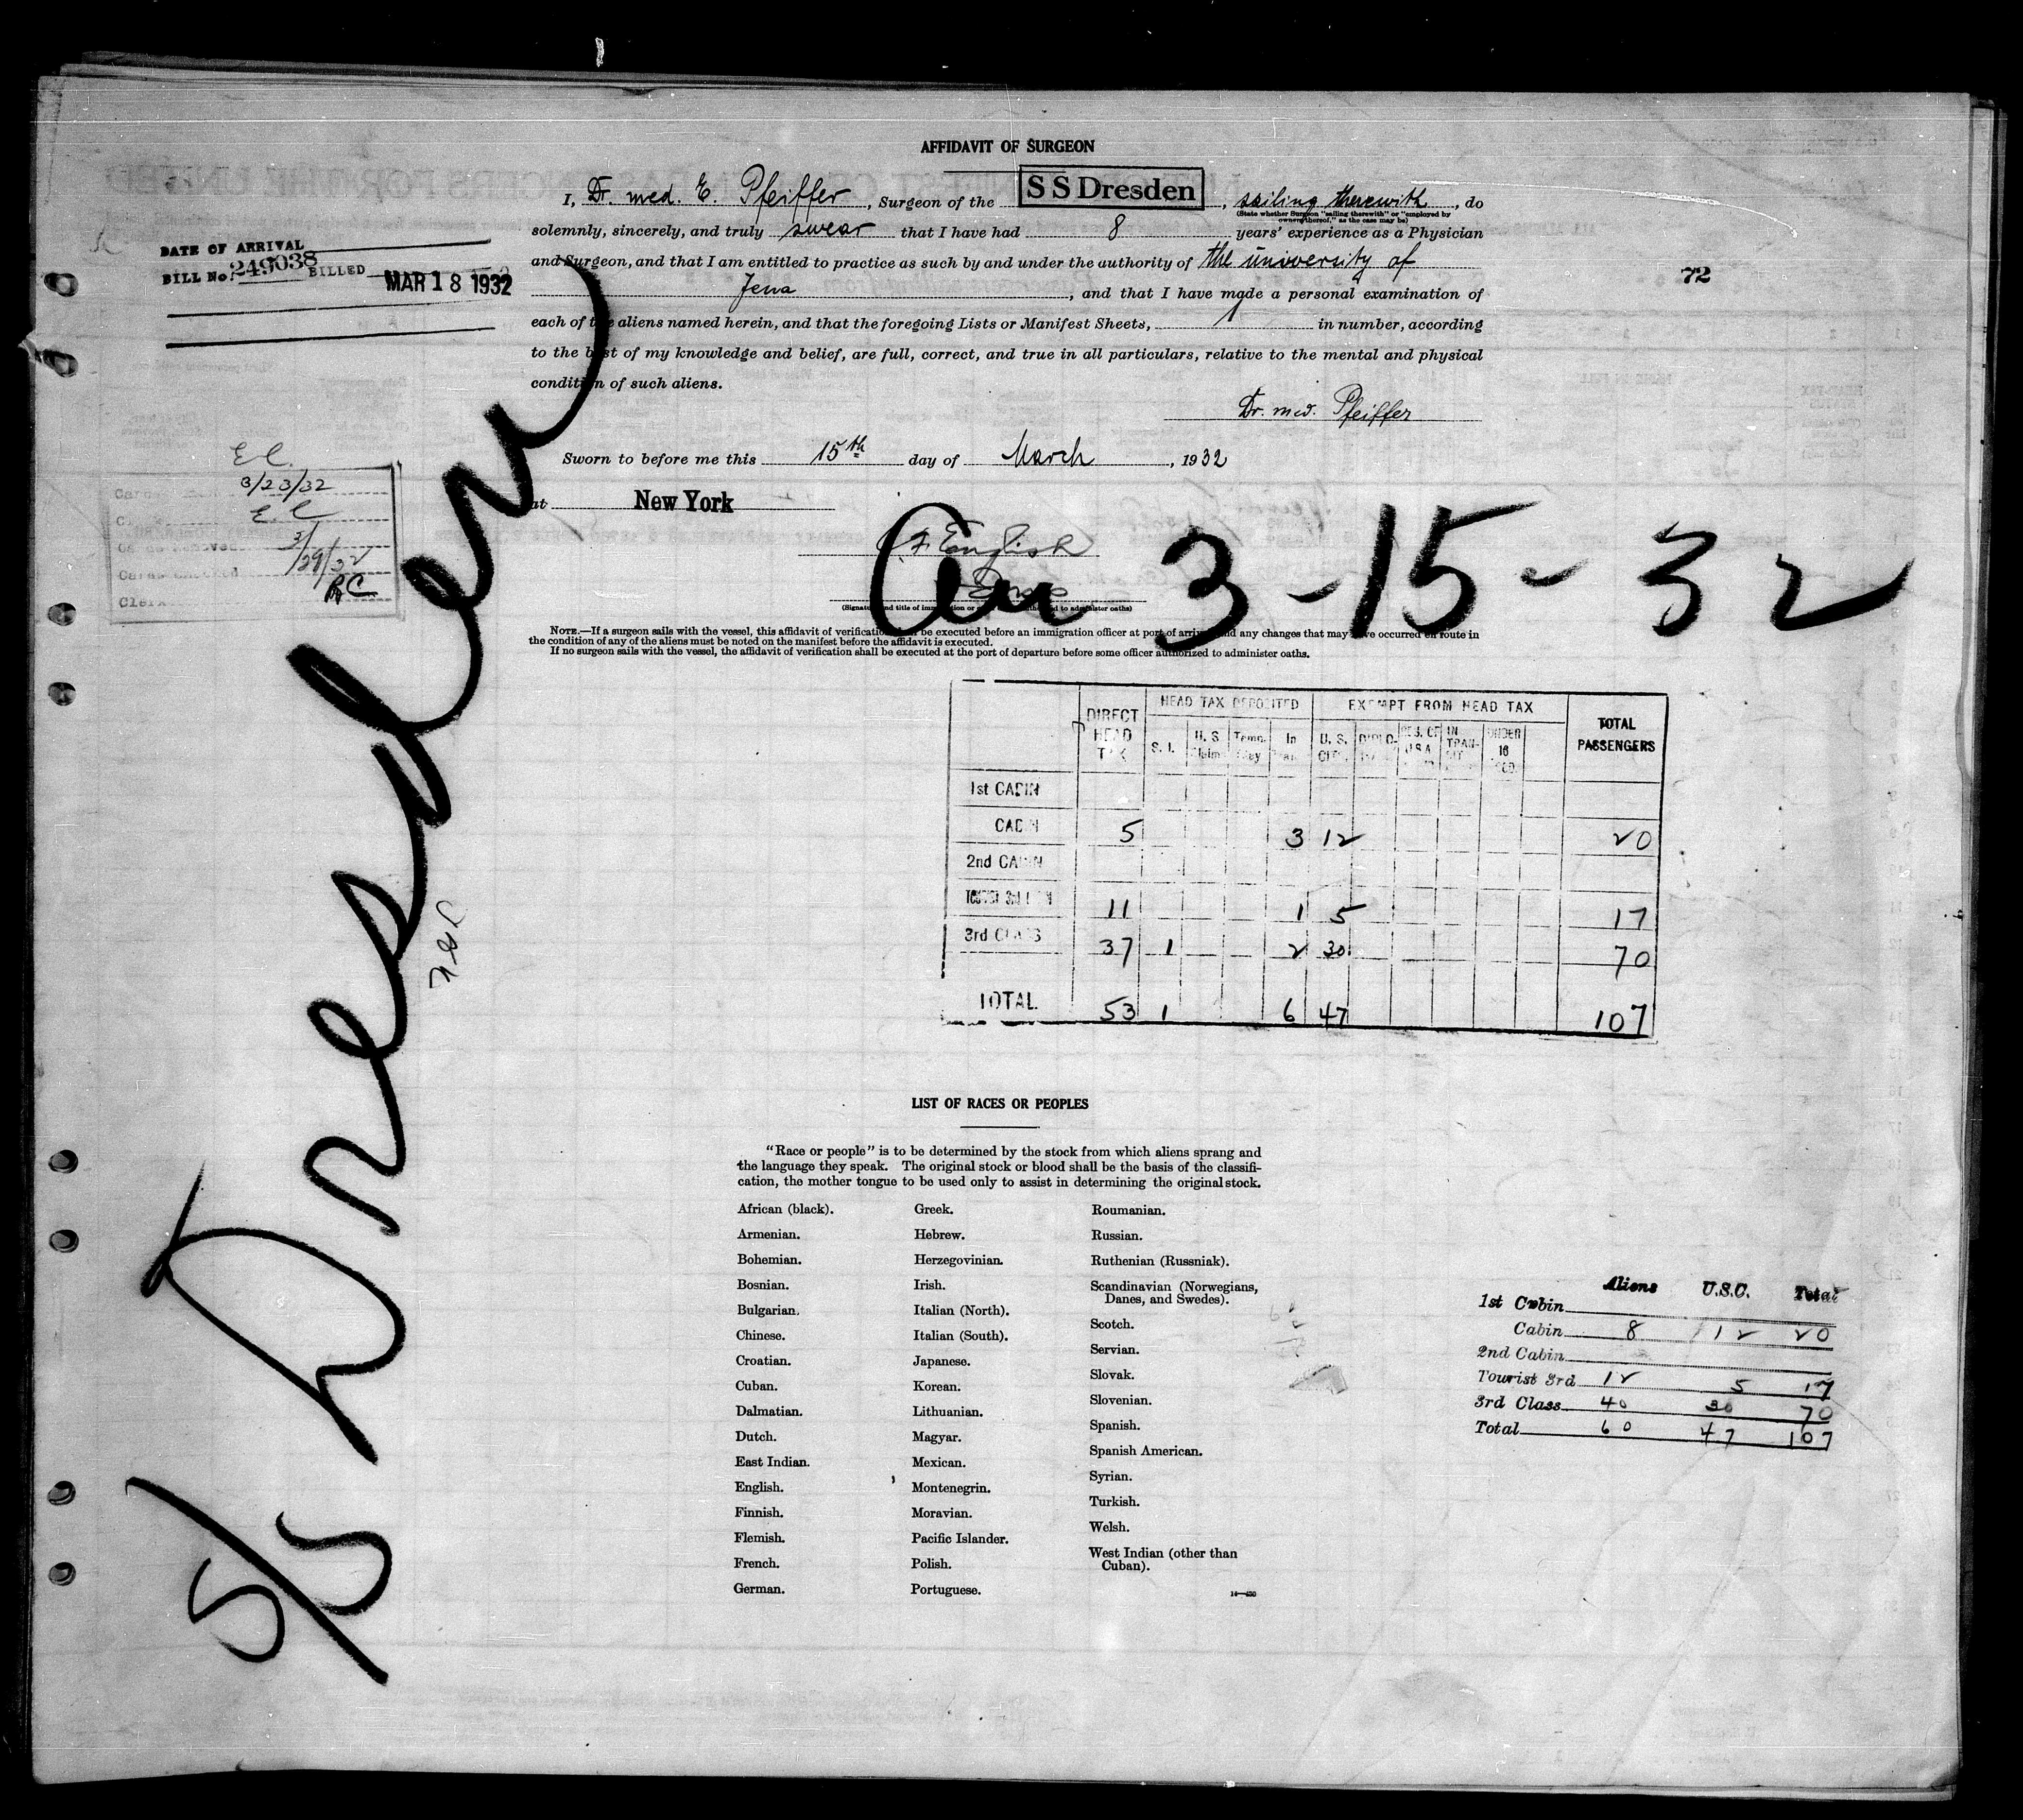 AFFIDAVIT OF SURGEON
I, Dr. med. E. Pfeiffer, Surgeon of the SS Dresden, sailing therewith, do
(State whether Surgeon "sailing therewith" or "employed by
owners thereof," as the case may be)
solemnly, sincerely, and truly swear that I have had 8 years' experience as a Physician
and Surgeon, and that I am entitled to practice as such by and under the authority of the university of
Jena, and that I have made a personal examination of
each of the aliens named herein, and that the foregoing Lists or Manifest Sheets, 1 in number, according
to the best of my knowledge and belief, are full, correct, and true in all particulars, relative to the mental and physical
condition of such aliens.
Dr. med. Pfeiffer
Sworn to before me this 15th day of March, 1932
at New York
English
(Signature and title of immigration or to administer oaths)
NOTE.—If a surgeon sails with the vessel, this affidavit of verification be executed before an immigration officer at port of arrival and any changes that may have occurred en route in
the condition of any of the aliens must be noted on the manifest before the affidavit is executed.
If no surgeon sails with the vessel, the affidavit of verification shall be executed at the port of departure before some officer authorized to administer oaths.
DATE OF ARRIVAL
BILL No. 249038 BILLED MAR 18 1932
72
E C.
3/23/32
E. C
3/29/32
Clerk RC
S/S Dresden
Arr 3-15-32
DIRECT HEAD TAX HEAD TAX DEPOSITED EXEMPT FROM HEAD TAX TOTAL PASSENGERS
S. I. U. S Claim Temp. Stay In Tran. U. S. CIT. DIPLO- RES. OF U.S.A. IN TRAN- SIT UNDER 16
1st CABIN
CABIN 5 3 12 20
2nd CABIN
TOURIST 3rd CABIN 11 1 5 17
3rd CLASS 37 1 2 30 70
TOTAL 53 1 6 47 107
LIST OF RACES OR PEOPLES
"Race or people" is to be determined by the stock from which aliens sprang and
the language they speak. The original stock or blood shall be the basis of the classifi-
cation, the mother tongue to be used only to assist in determining the original stock.
African (black).
Armenian.
Bohemian.
Bosnian.
Bulgarian.
Chinese.
Croatian.
Cuban.
Dalmatian.
Dutch.
East Indian.
English.
Finnish.
Flemish.
French.
German.
Greek.
Hebrew.
Herzegovinian.
Irish.
Italian (North).
Italian (South).
Japanese.
Korean.
Lithuanian.
Magyar.
Mexican.
Montenegrin.
Moravian.
Pacific Islander.
Polish.
Portuguese.
Roumanian.
Russian.
Ruthenian (Russniak).
Scandinavian (Norwegians,
Danes, and Swedes).
Scotch.
Servian.
Slovak.
Slovenian.
Spanish.
Spanish American.
Syrian.
Turkish.
Welsh.
West Indian (other than
Cuban).
Aliens U.S.C. Total
1st Cabin
Cabin 8 12 20
2nd Cabin
Tourist 3rd 12 5 17
3rd Class 40 30 70
Total 60 47 107